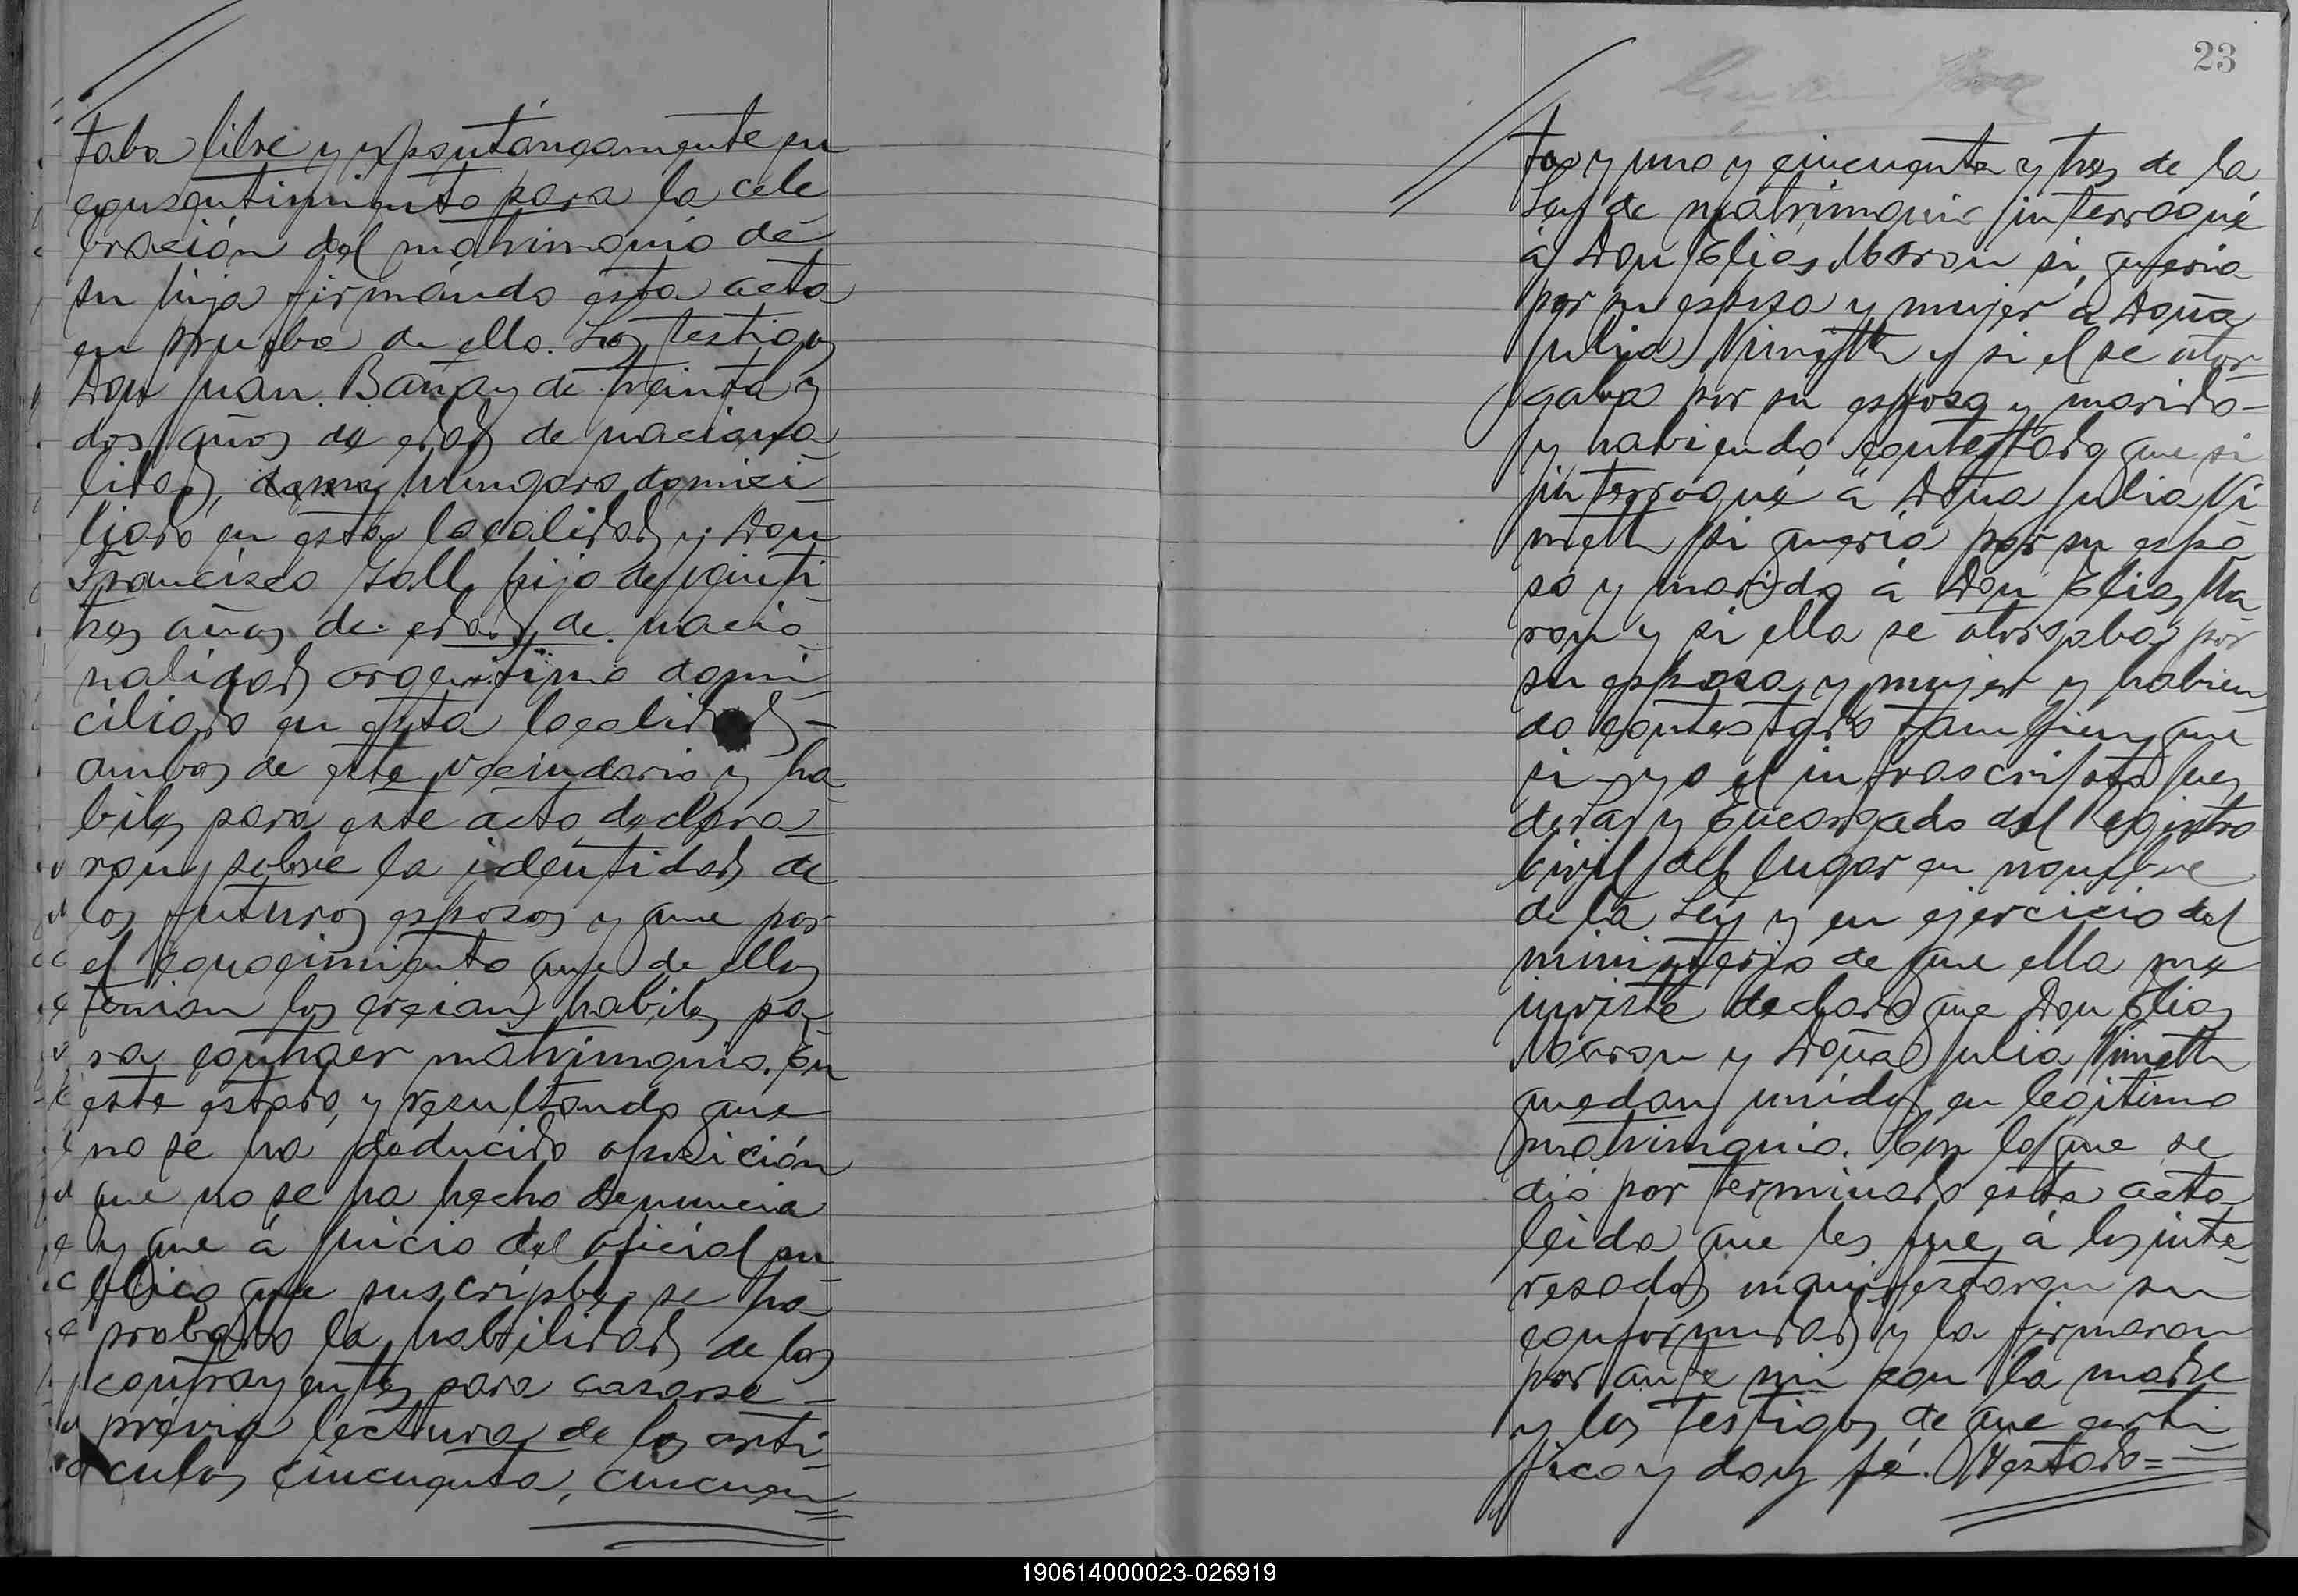 taba libre y espontáneamente su
consentimiento para la cele
bración del matrimonio de
su hija firmándo esta acta
en prueba de ello. Los testigos
Don Juan Bañay de treinta y
dos años de edad de naciona
lidad, hungaro domici
liado en esta localidad y Don
Francisco Goll hijo de veinti
tres años de edad, de nacio
nalidad argentino domi
ciliado en esta localidad
ambos de este vecindario y ha
biles para este acto declara
ron sobre la identidad de
los futuros esposos y que por
el conocimiento que de ellos
tenian los creian habiles pa
ra contraer matrimonio. En
este estado, y resultando que
no se ha deducido oposición
que no se ha hecho denuncia
y que á juicio del oficial pu
blico que suscribe se ha
probado la habilidad de los
contrayentes para casarse
prévia lectura de los arti
culos cincuenta, cincuen
23
ta y uno y cincuenta y tres de la
Ley de matrimonio interrogué
á Don Elias Maron si queria
por su esposa y mujer á Doña
Julia Nimeth y si el se otor
gaba por su esposo y marido
y habiendo contestado que si
interrogué á Doña Julia Ni
meth si queria por su espo
so y marido á Don Elias Ma
ron y si ella se otorgaba por
su esposa y mujer y habien
do contestado tambien que
si yo el infrascripto Juez
de Paz y Encargado del Registro
Civil del lugar en nombre
de la Ley y en ejercicio del
ministerio de que ella me
inviste declaro que Don Elias
Maron y Doña Julia Nimeth
quedan unidos en legitimo
matrimonio. Con lo que se
dió por terminado esta acta
leida que les fue á los inte
resados manifestaron su
conformidad y la firmaron
por ante mi con la madre
y los testigos de que certi
fico y doy fé. Testado=
190614000023-026919